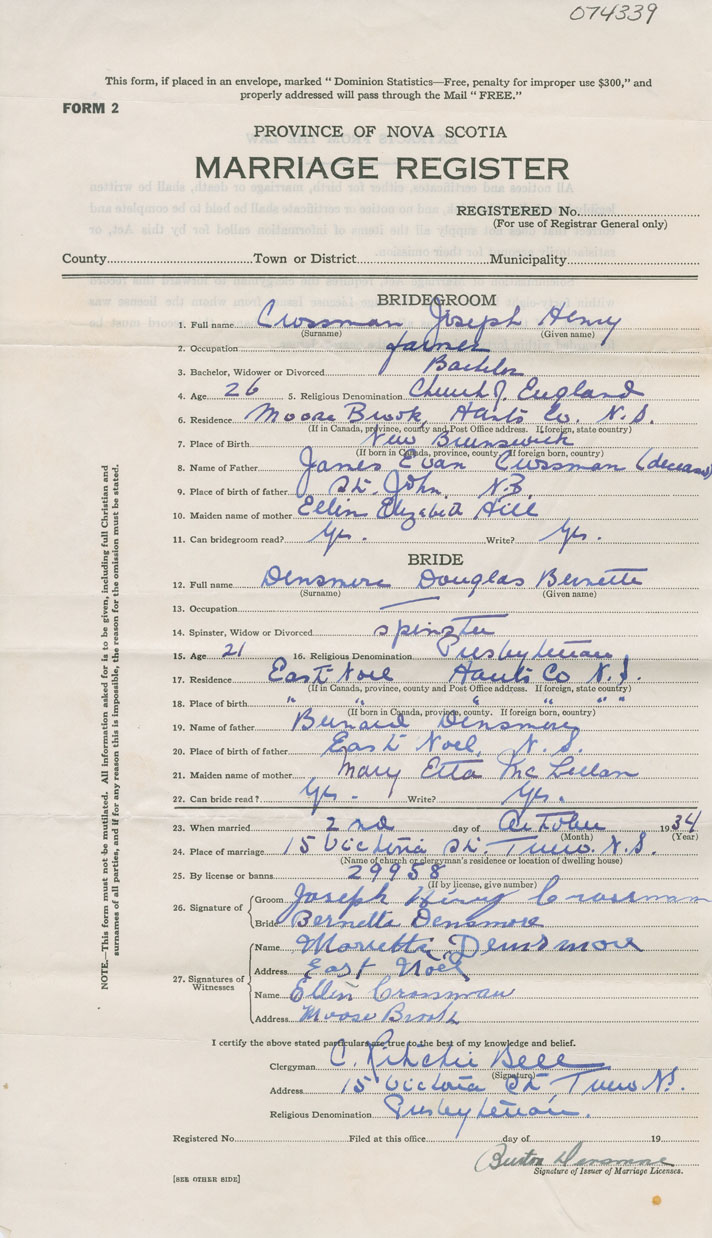 074339
This form, if placed in an envelope, marked " Dominion Statistics—Free, penalty for improper use $300," and
properly addressed will pass through the Mail " FREE."
FORM 2
PROVINCE OF NOVA SCOTIA
MARRIAGE REGISTER
REGISTERED No.
(For use of Registrar General only)
County Town or District Municipality
BRIDEGROOM
1. Full name Crossman Joseph Henry
(Surname) (Given name)
2. Occupation farmer
3. Bachelor, Widower or Divorced Bachelor
4. Age 26 5. Religious Denomination Church of England
6. Residence Moose Brook, Hants Co. N.S.
(If in Canada, province, county and Post Office address. If foreign, state country)
7. Place of Birth New Brunswick
(If born in Canada, province, county. If foreign born, country)
8. Name of Father James Evan Crossman (deceased)
9. Place of birth of father St. John, N.B.
10. Maiden name of mother Ellen Elizabeth Hill
11. Can bridegroom read? Yes. Write? Yes.
BRIDE
12. Full name Densmore Douglas Bernette
(Surname) (Given name)
13. Occupation —
14. Spinster, Widow or Divorced spinster
15. Age 21 16. Religious Denomination Presbyterian
17. Residence East Noel Hants Co N.S.
(If in Canada, province, county and Post Office address. If foreign, state country)
18. Place of Birth " " " " " "
(If born in Canada, province, county. If foreign born, country)
19. Name of father Bernard Densmore
20. Place of birth of father East Noel, N.S.
21. Maiden name of mother Mary Etta McLellan
22. Can bride read? Yes. Write? Yes.
23. When married 2nd day of October 1934
(Month) (Year)
24. Place of marriage 15 Victoria St. Truro. N.S.
(Name of church or clergyman's residence or location of dwelling house)
25. By license or banns 29958
(If by license, give number)
26. Signature of
Groom Joseph Henry Crossman
Bride Bernetta Densmore
27. Signatures of Witnesses
Name Marietta Densmore
Address East Noel
Name Ellen Crossman
Address Moose Brook
I certify the above stated particulars are true to the best of my knowledge and belief.
Clergyman C. Ritchie Bell
(Signature)
Address 15 Victoria St Truro N.S.
Religious Denomination Presbyterian.
Registered No. Filed at this office day of 19
Burton Densmore
Signature of Issuer of Marriage Licenses.
[SEE OTHER SIDE]
NOTE.—This form must not be mutilated. All information asked for is to be given, including full Christian and
surnames of all parties, and if for any reason this is impossible, the reason for the omission must be stated.